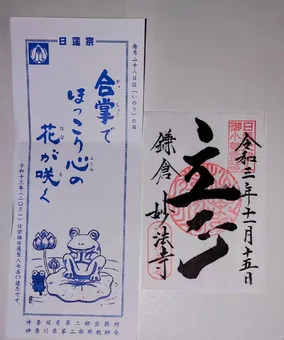 日蓮宗
毎月二十八日は「いのり」の日
合掌で
ほっこり心の
花が咲く
令和十三年(二〇三一)は宗祖日蓮聖人七五〇遠忌です。
神奈川県第二部宗務所
神奈川県第二部布教師会
令和三年十一月十五日
鎌倉 妙法寺